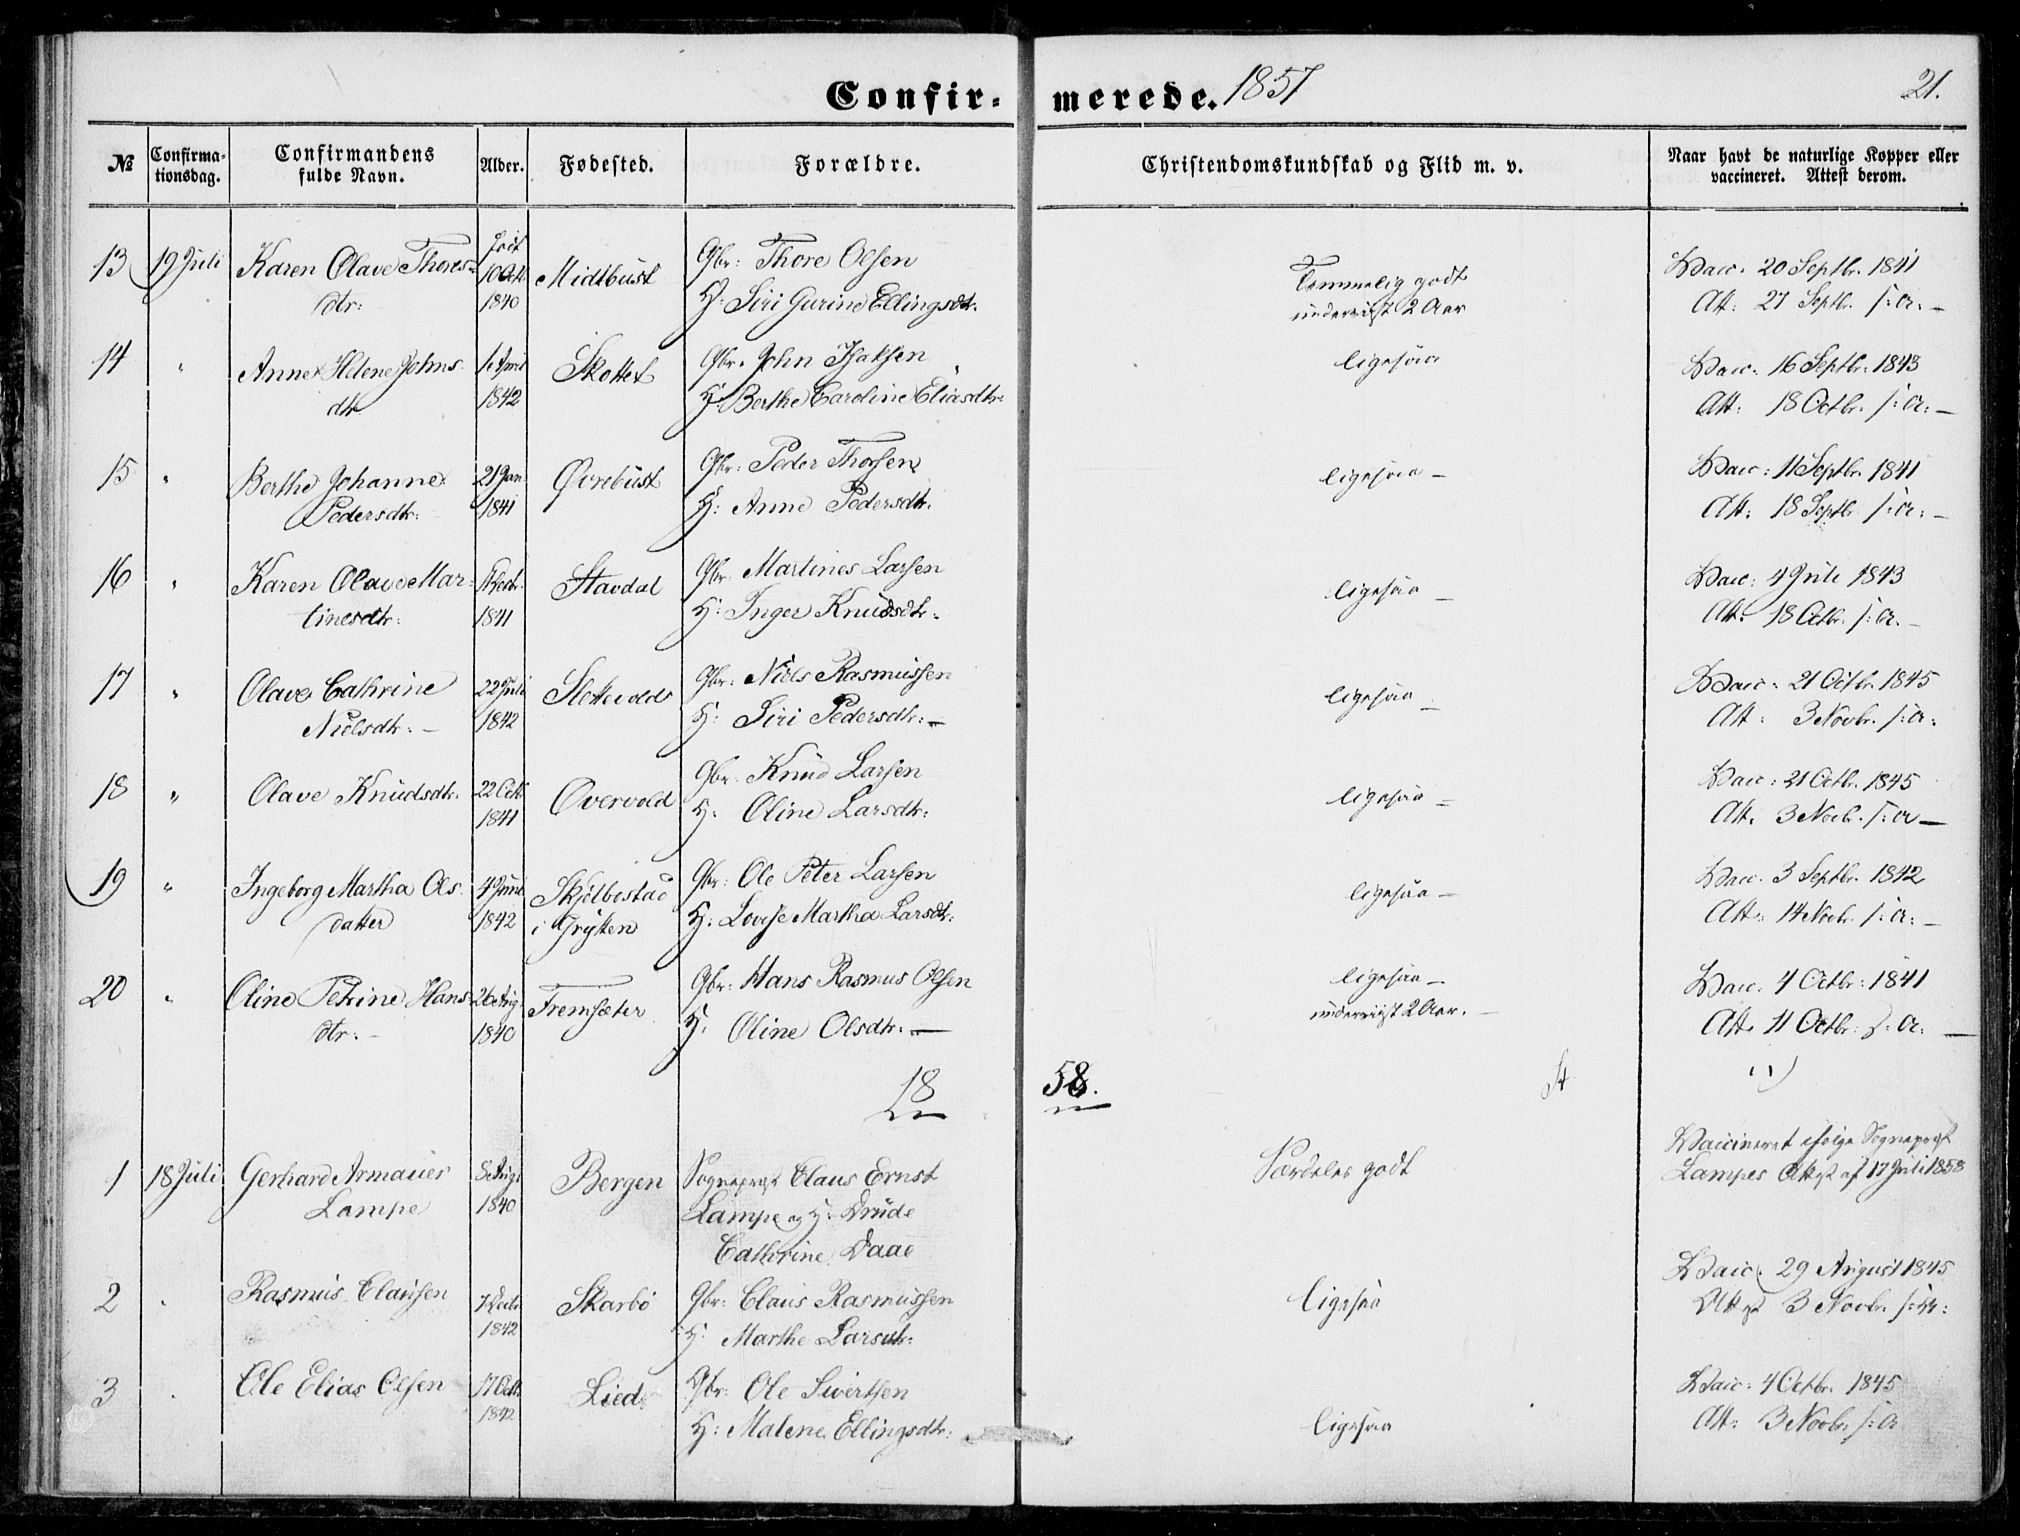 Confir- merede. 1857 21.
№ Confirma-tionsdag. Confirmandens fulde Navn. Alder. Fødested. Forældre. Christendomskundskab og Flid m. v. Naar havt de naturlige Kopper eller vaccineret. Attest derom.
13 19 Juli Karen Olave Thores- født 10 Octb. Midtbust Gbr: Thore Olsen Temmelig godt Vacc. 20 Septbr. 1841
dtr: 1840 H: Siri Gurine Ellingsdtr. underviist 2 Aar Att: 27 Septbr. s: a: —
14 " Anne Helene Johns 1 April Skottet Gbr. John Isaksen ligesaa Vacc. 16 Septbr. 1843
dtr 1842 H: Berthe Caroline Eliasdtr: Att: 18 Octbr. s: a: —
15 " Berthe Johanne 21 Jan Øvrebust Gbr: Peder Thorsen ligesaa — Vacc: 11 Septbr. 1841
Pedersdtr: 1841 H: Anne Pedersdtr. Att: 18 Septbr. s: a: —
16 " Karen Olave Mar- Stavdal Gbr. Martines Larsen ligesaa — Vacc: 4 Juli 1843
tinesdtr: 1841 H: Inger Knudsdtr. Att: 18 Octbr. s: a. —
17 " Olave Cathrine 22 Juli Slottevolds Gbr: Niels Rasmussen ligesaa — Vacc: 21 Octbr. 1845
Nielsdtr: — 1842 H: Siri Pedersdtr: — Att: 3 Novbr. s: a:
18 " Olave Knudsdtr. 22 Octb Øvervold Gbr. Knud Larsen ligesaa — Vacc: 21 Octbr. 1845
1841 H: Oline Larsdtr: Att. 3 Novbr. s: a —
19 " Ingeborg Martha Ols- 4 Juni Skjelbostad Gbr: Ole Peter Larsen ligesaa — Vacc. 3 Septbr. 1842
datter 1842 i Grytten H: Lovise Martha Larsdtr: Att: 14 Novbr. s: a: —
20 " Oline Petrine Hans- 26 Aug. Fremsæter Gbr: Hans Rasmus Olsen ligesaa — Vacc: 4 Octbr: 1841
dtr: — 1840 H. Oline Olsdtr: — underviist 2 Aar. — Att. 11 Octbr: s: a: —
18 58.
1 18 Juli Gerhard Armauer 8 Aug. Bergen Sognepræst Claus Ernst Særdeles godt Vaccineret ifølge Sognepræst
Lampe 1840 Lampe og H: Drude Lampes Attest af 17 Juli 1858
Cathrine Daae
2 Rasmus Clausen 7 Skarbø Gbr: Claus Rasmussen ligesaa Vacc. 29 August 1845
1842 H: Marthe Larsdtr: Attest 3 Novbr. s: a:
3 Ole Elias Olsen 17 Octb. Lied Gbr: Ole Sivertsen ligesaa Vacc: 4 Octbr. 1845
1842 H: Malene Ellingsdtr: Att: 3 Novbr. s: a